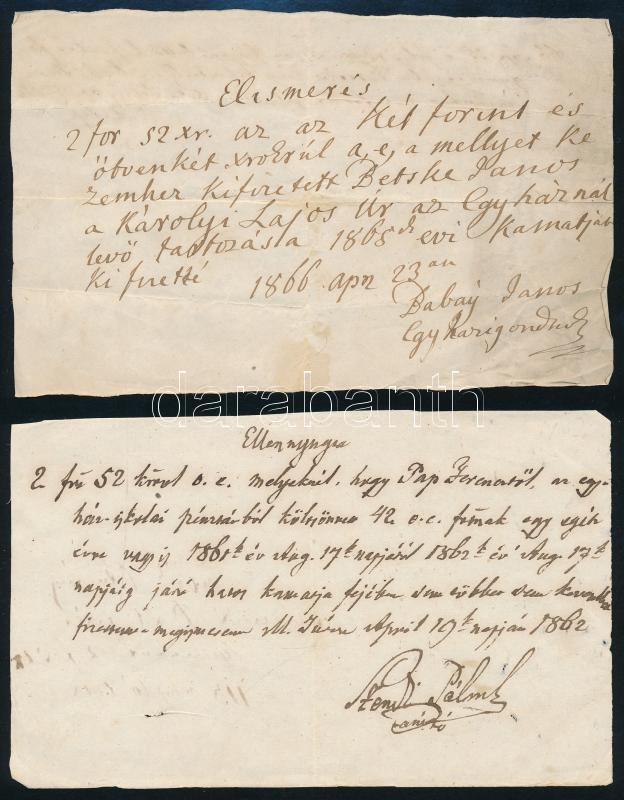 Elismerés
2 for 52 xr. az az Két forint és
ötvenkét xrokrúl a, e, a mellyet ke
zemher kifizetett Betske Janos
a Károlyi Lajos Ur az Egyháznál
levö tartozása 1865 dk evi kamatját
Ki fizetté 1866 apr 23 an
Dabaÿ Janos
Egyházigondnok
darabanth
Ellennyugta
2 frt 52 krról o. e. melyeknél, hogy Pap Ferencztől, az egy-
ház-iskolai pénztárból kölcsönrem 42. o. e. frtnak egy egész
évre vagyis 1861k év Aug. 17k napjáról 1862k év Aug. 17k
napjáig járó hatos kamatja fejében sem többet sem kevesebbet
April 19k napján 1862
Pálmk
tanító